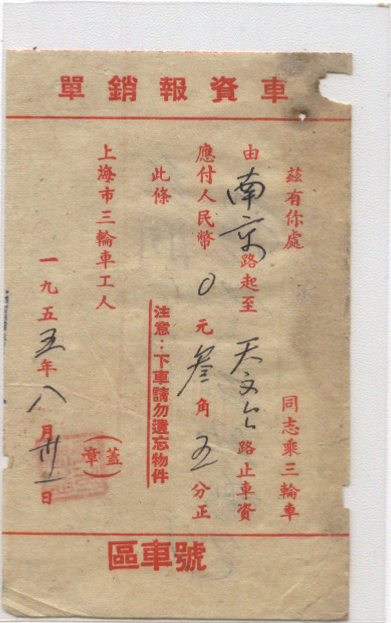 車資報銷單
茲有你處 同志乘三輪車
由南京路起至天文台路止車資
應付人民幣0元叁角五分正
此條
上海市三輪車工人 (蓋章)
一九五五年八月卅一日
注意：下車請勿遺忘物件
區車號